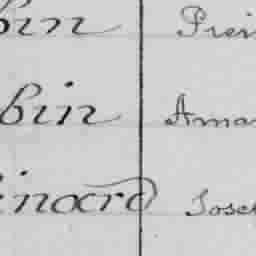 bin Prei
bin Ama
inard Jose